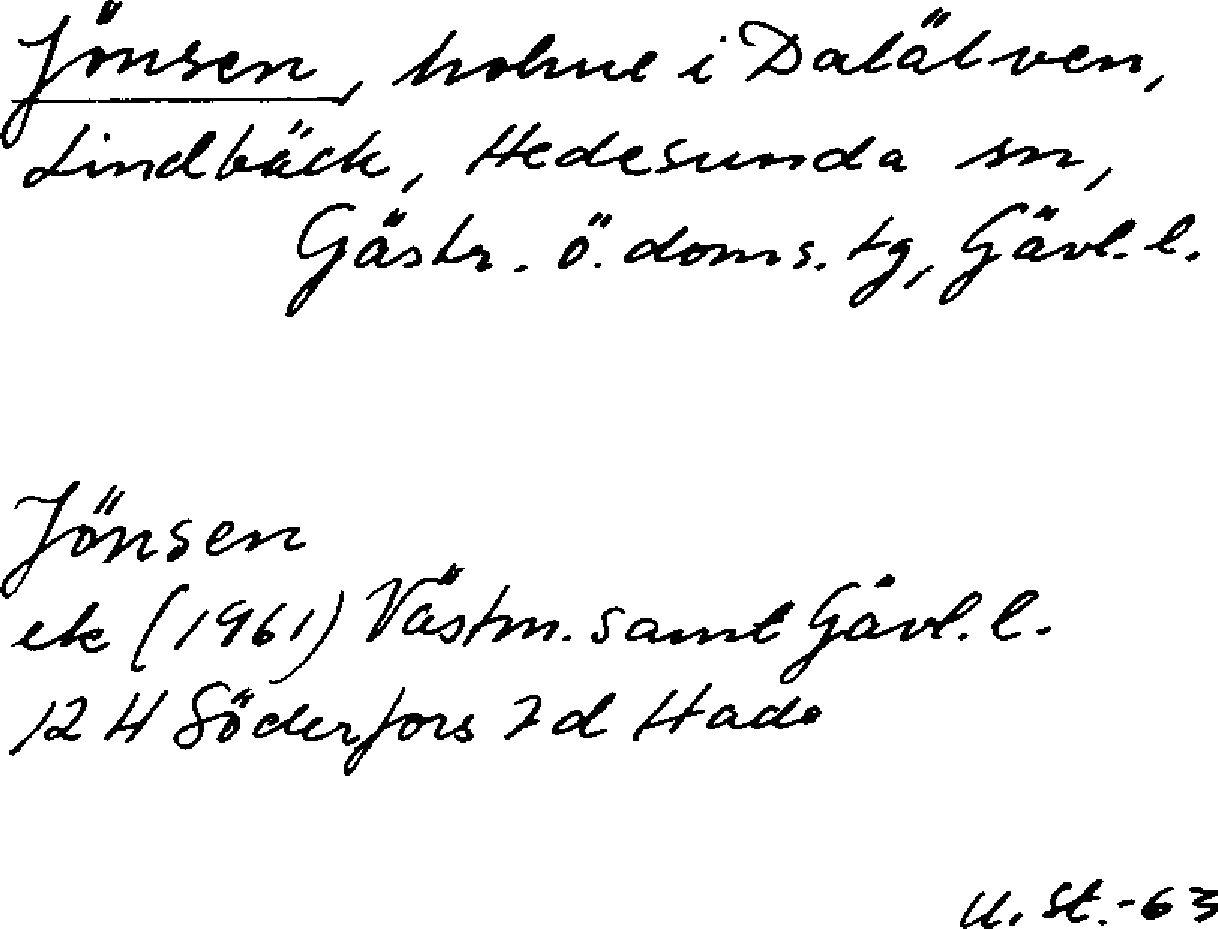 Jönsen, holme i Dalälven,
Lindbäck, Hedesunda sn,
Gästr. ö. doms. tg, Gävl. l.
Jönsen
ek (1961) Västm. samt Gävl. l.
12 H Söderfors 7 d Hade
U. St. -63